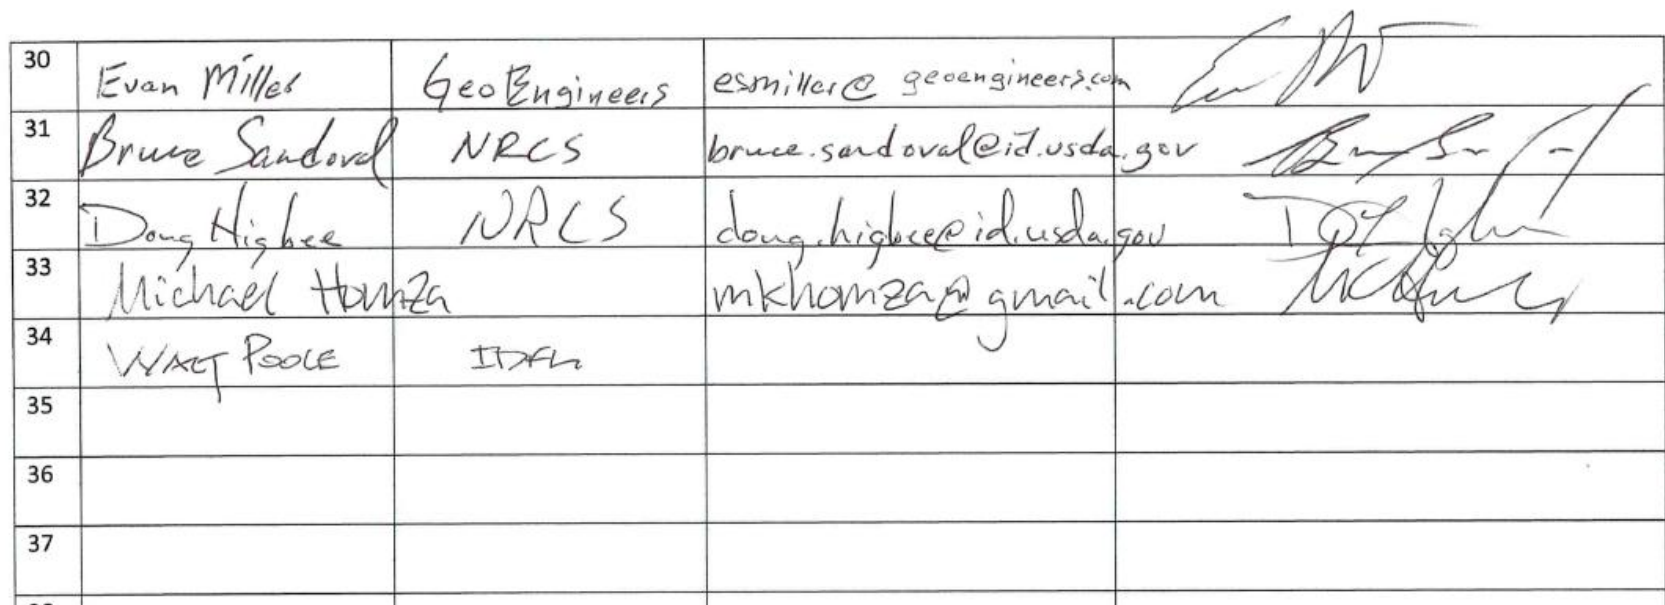 30 Evan Miller GeoEngineers esmiller@geoengineers.com
31 Bruce Sandoval NRCS bruce.sandoval@id.usda.gov
32 Doug Higbee NRCS doug.higbee@id.usda.gov
33 Michael Homza mkhomza@gmail.com
34 WALT POOLE IDFG
35
36
37